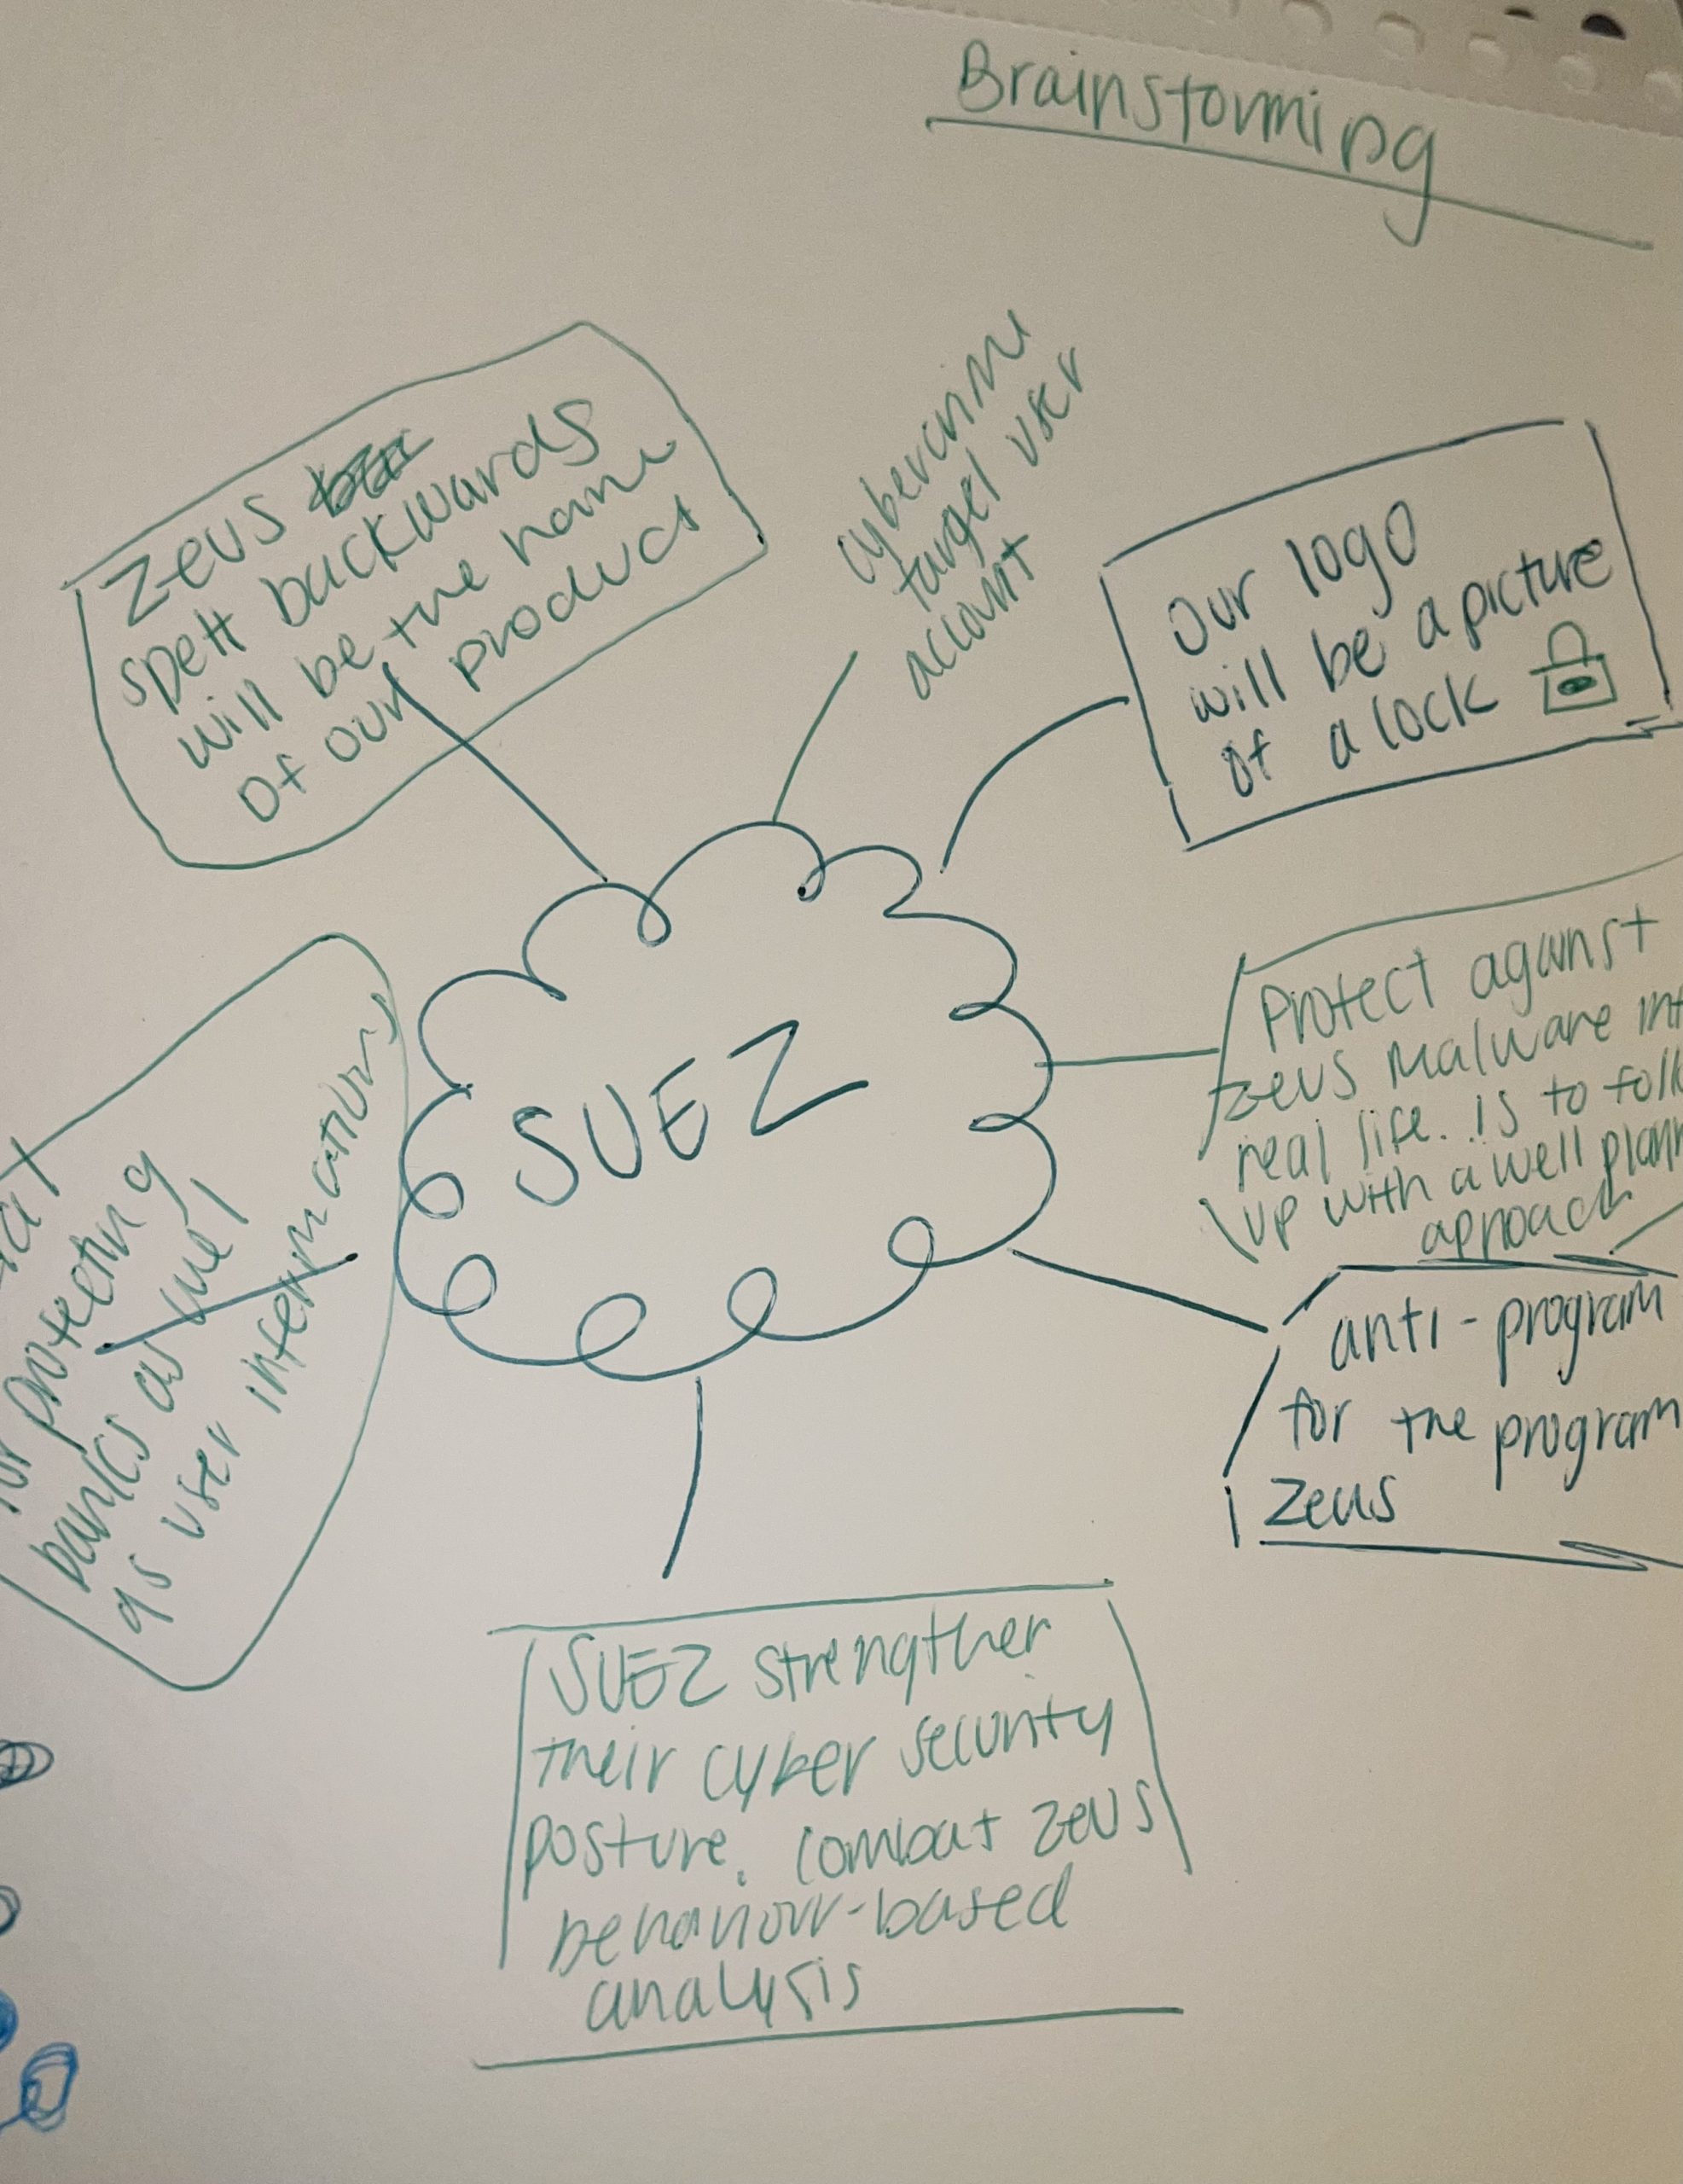 Brainstorming
Zeus
spelt backwards
will be the name
of our product
cybercrime
target user
account
Our logo
will be a picture
of a lock
Protect against
Zeus Malware
real life. is to
up with a well
aproach
SUEZ
anti-program
for the program
Zeus
protecting
banks as well
as user informations
SUEZ strengther
their cyber security
posture. combat Zeus
behaviour-based
analysis